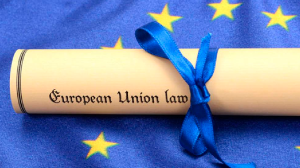 European Union law